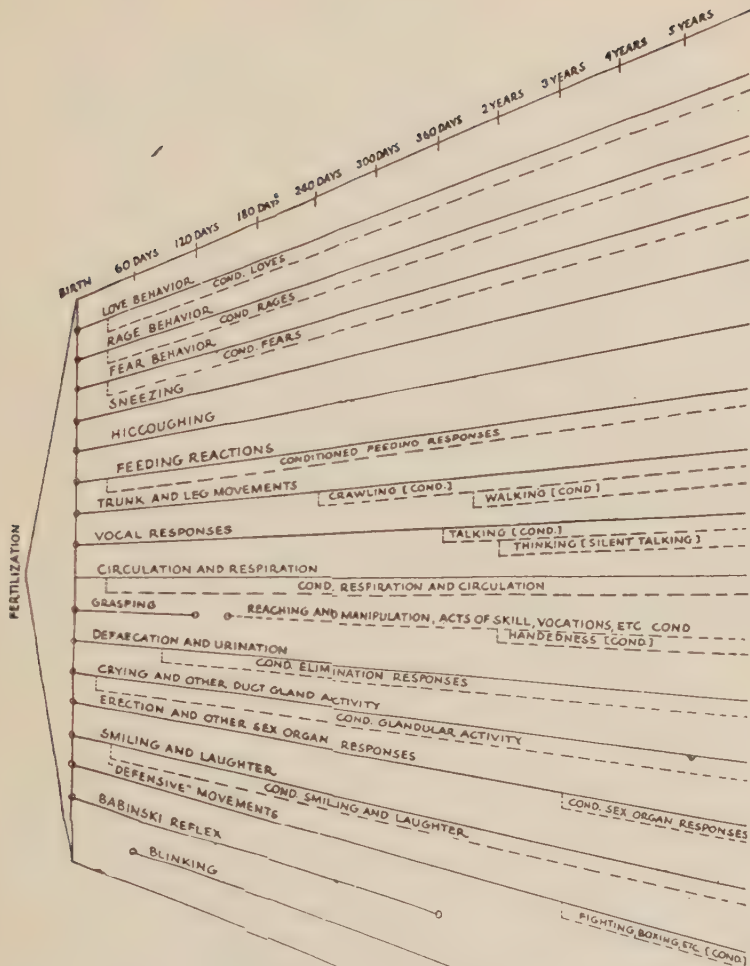 BIRTH
60 DAYS
120 DAYS
180 DAYS
240 DAYS
300 DAYS
360 DAYS
2 YEARS
3 YEARS
4 YEARS
5 YEARS
FERTILIZATION
LOVE BEHAVIOR
COND. LOVES
RAGE BEHAVIOR
COND. RAGES
FEAR BEHAVIOR
COND. FEARS
SNEEZING
HICCOUGHING
FEEDING REACTIONS
CONDITIONED FEEDING RESPONSES
TRUNK AND LEG MOVEMENTS
CRAWLING [COND.]
WALKING [COND]
VOCAL RESPONSES
TALKING [COND.]
THINKING [SILENT TALKING]
CIRCULATION AND RESPIRATION
COND. RESPIRATION AND CIRCULATION
GRASPING
REACHING AND MANIPULATION, ACTS OF SKILL, VOCATIONS, ETC COND
HANDEDNESS [COND.]
DEFAECATION AND URINATION
COND. ELIMINATION RESPONSES
CRYING AND OTHER DUCT GLAND ACTIVITY
COND. GLANDULAR ACTIVITY
ERECTION AND OTHER SEX ORGAN RESPONSES
COND. SEX ORGAN RESPONSES
SMILING AND LAUGHTER
COND. SMILING AND LAUGHTER
"DEFENSIVE" MOVEMENTS
FIGHTING, BOXING, ETC [COND.]
BABINSKI REFLEX
BLINKING